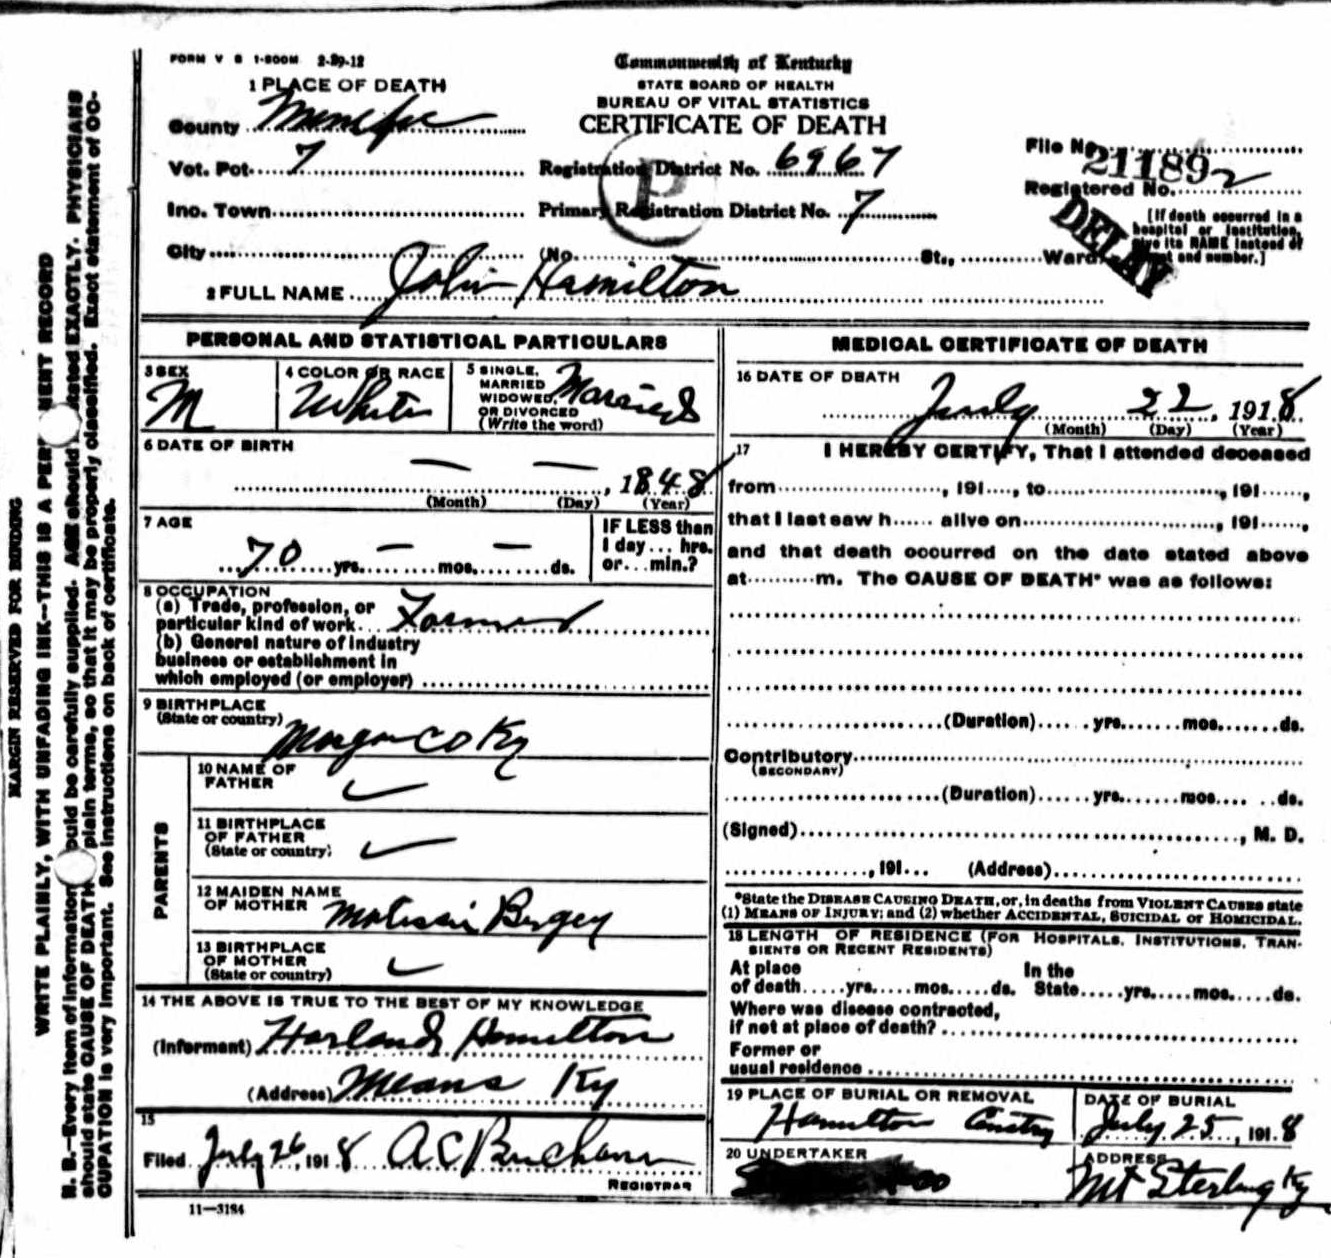 FORM V S 1-500M 2-29-12
Commonwealth of Kentucky
STATE BOARD OF HEALTH
BUREAU OF VITAL STATISTICS
CERTIFICATE OF DEATH
1 PLACE OF DEATH
County Menifee
Vot. Pct. 7
Inc. Town
City
Registration District No. 6967
Primary Registration District No. 7
P
(No. St., Ward
File No. 21189
Registered No. 2
DELAY
[If death occurred in a
hospital or institution,
give its NAME instead of
street and number.]
2 FULL NAME John Hamilton
PERSONAL AND STATISTICAL PARTICULARS
3 SEX
M
4 COLOR OR RACE
White
5 SINGLE,
MARRIED
WIDOWED,
OR DIVORCED
(Write the word)
Married
6 DATE OF BIRTH
— — , 1848
(Month) (Day) (Year)
7 AGE
70 yrs. — mos. — ds.
IF LESS than
1 day ... hrs.
or ... min.?
8 OCCUPATION
(a) Trade, profession, or
particular kind of work Farmer
(b) General nature of industry
business or establishment in
which employed (or employer)
9 BIRTHPLACE
(State or country)
Morgan Co Ky
PARENTS
10 NAME OF
FATHER
11 BIRTHPLACE
OF FATHER
(State or country)
12 MAIDEN NAME
OF MOTHER
13 BIRTHPLACE
OF MOTHER
(State or country)
14 THE ABOVE IS TRUE TO THE BEST OF MY KNOWLEDGE
(Informant) Harland Hamilton
(Address) Means Ky
15
Filed July 26, 1918 A C Buchanan
REGISTRAR
11—3184
MEDICAL CERTIFICATE OF DEATH
16 DATE OF DEATH
July 22, 1918
(Month) (Day) (Year)
17 I HEREBY CERTIFY, That I attended deceased
from , 191 , to , 191 ,
that I last saw h alive on , 191 ,
and that death occurred on the date stated above
at m. The CAUSE OF DEATH* was as follows:
(Duration) yrs. mos. ds.
Contributory
(SECONDARY)
(Duration) yrs. mos. ds.
(Signed) , M. D.
, 191 (Address)
*State the DISEASE CAUSING DEATH, or, in deaths from VIOLENT CAUSES state
(1) MEANS OF INJURY; and (2) whether ACCIDENTAL, SUICIDAL or HOMICIDAL.
18 LENGTH OF RESIDENCE (FOR HOSPITALS, INSTITUTIONS, TRAN-
SIENTS OR RECENT RESIDENTS)
At place In the
of death yrs. mos. ds. State yrs. mos. ds.
Where was disease contracted,
if not at place of death?
Former or
usual residence
19 PLACE OF BURIAL OR REMOVAL
Hamilton
DATE OF BURIAL
July 25, 1918
20 UNDERTAKER
ADDRESS
Mt Sterling Ky
MARGIN RESERVED FOR BINDING
WRITE PLAINLY, WITH UNFADING INK--THIS IS A PERMANENT RECORD
N. B.—Every item of information should be carefully supplied. AGE should be stated EXACTLY. PHYSICIANS
should state CAUSE OF DEATH in plain terms, so that it may be properly classified. Exact statement of OC-
CUPATION is very important. See instructions on back of certificate.